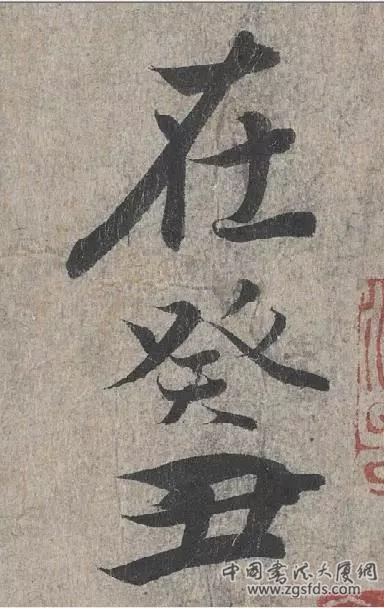 在癸丑
中国书法大厦网
www.zgsfds.com